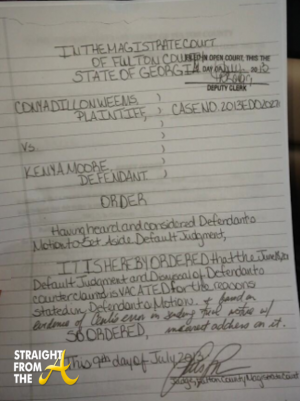 IN THE MAGISTRATE COURT
OF FULTON COUNTY
STATE OF GEORGIA
FILED IN OPEN COURT, THIS THE
DAY OF
DEPUTY CLERK
CONYA DILLON WEEMS )
PLAINTIFF, ) CASE NO.
)
VS. )
)
KENYA MOORE, )
DEFENDANT )
ORDER
Having heard and considered Defendant's
Motion to Set Aside Default Judgment,
IT IS HEREBY ORDERED that the June
Default Judgment and Dismissal of Defendant's
counterclaim is VACATED for the reasons
stated in Defendant's Motion. & based on
evidence of Clerk's error in sending trial notice w/
SO ORDERED, incorrect address on it.
This 9th day of July 2013
Judge, Fulton County Magistrate Court
STRAIGHT
FROM
THE A